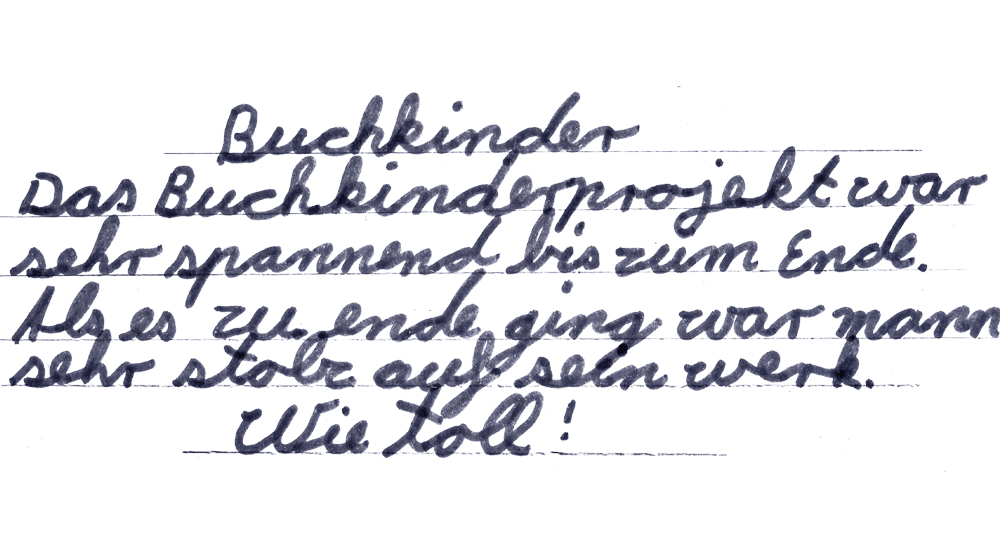 Buchkinder
Das Buchkinderprojekt war
sehr spannend bis zum Ende.
Als es zu ende ging war mann
sehr stolz auf sein werk.
Wie toll!